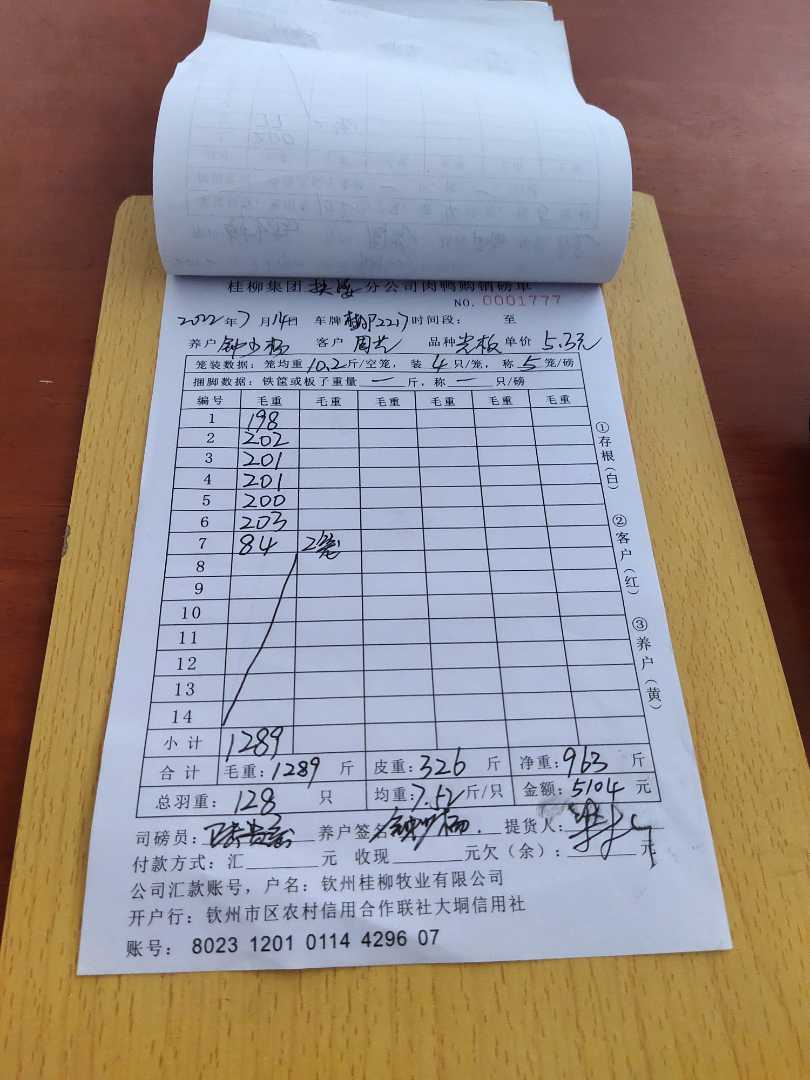 桂柳集团 分公司肉鸭购销磅单
NO. 0001777
2022年7月14日 车牌 2217时间段： 至
养户 钟 杨 客户 周 品种 光板 单价 5.3元
笼装数据：笼均重10.2斤/空笼，装4只/笼，称5笼/磅
捆脚数据：铁筐或板子重量—斤，称—只/磅
编号 毛重 毛重 毛重 毛重 毛重 毛重
1 198
2 202
3 201
4 201
5 200
6 203
7 84 2笼
8
9
10
11
12
13
14
小计 1289
合计 毛重：1289 斤 皮重：326 斤 净重：963 斤
总羽重：128 只 均重：7.52斤/只 金额：5104 元
司磅员： 养户签名 提货人：
付款方式：汇 元 收现 元欠（余）： 元
公司汇款账号，户名：钦州桂柳牧业有限公司
开户行：钦州市区农村信用合作联社大垌信用社
账号： 8023 1201 0114 4296 07
①存根（白）
②客户（红）
③养户（黄）